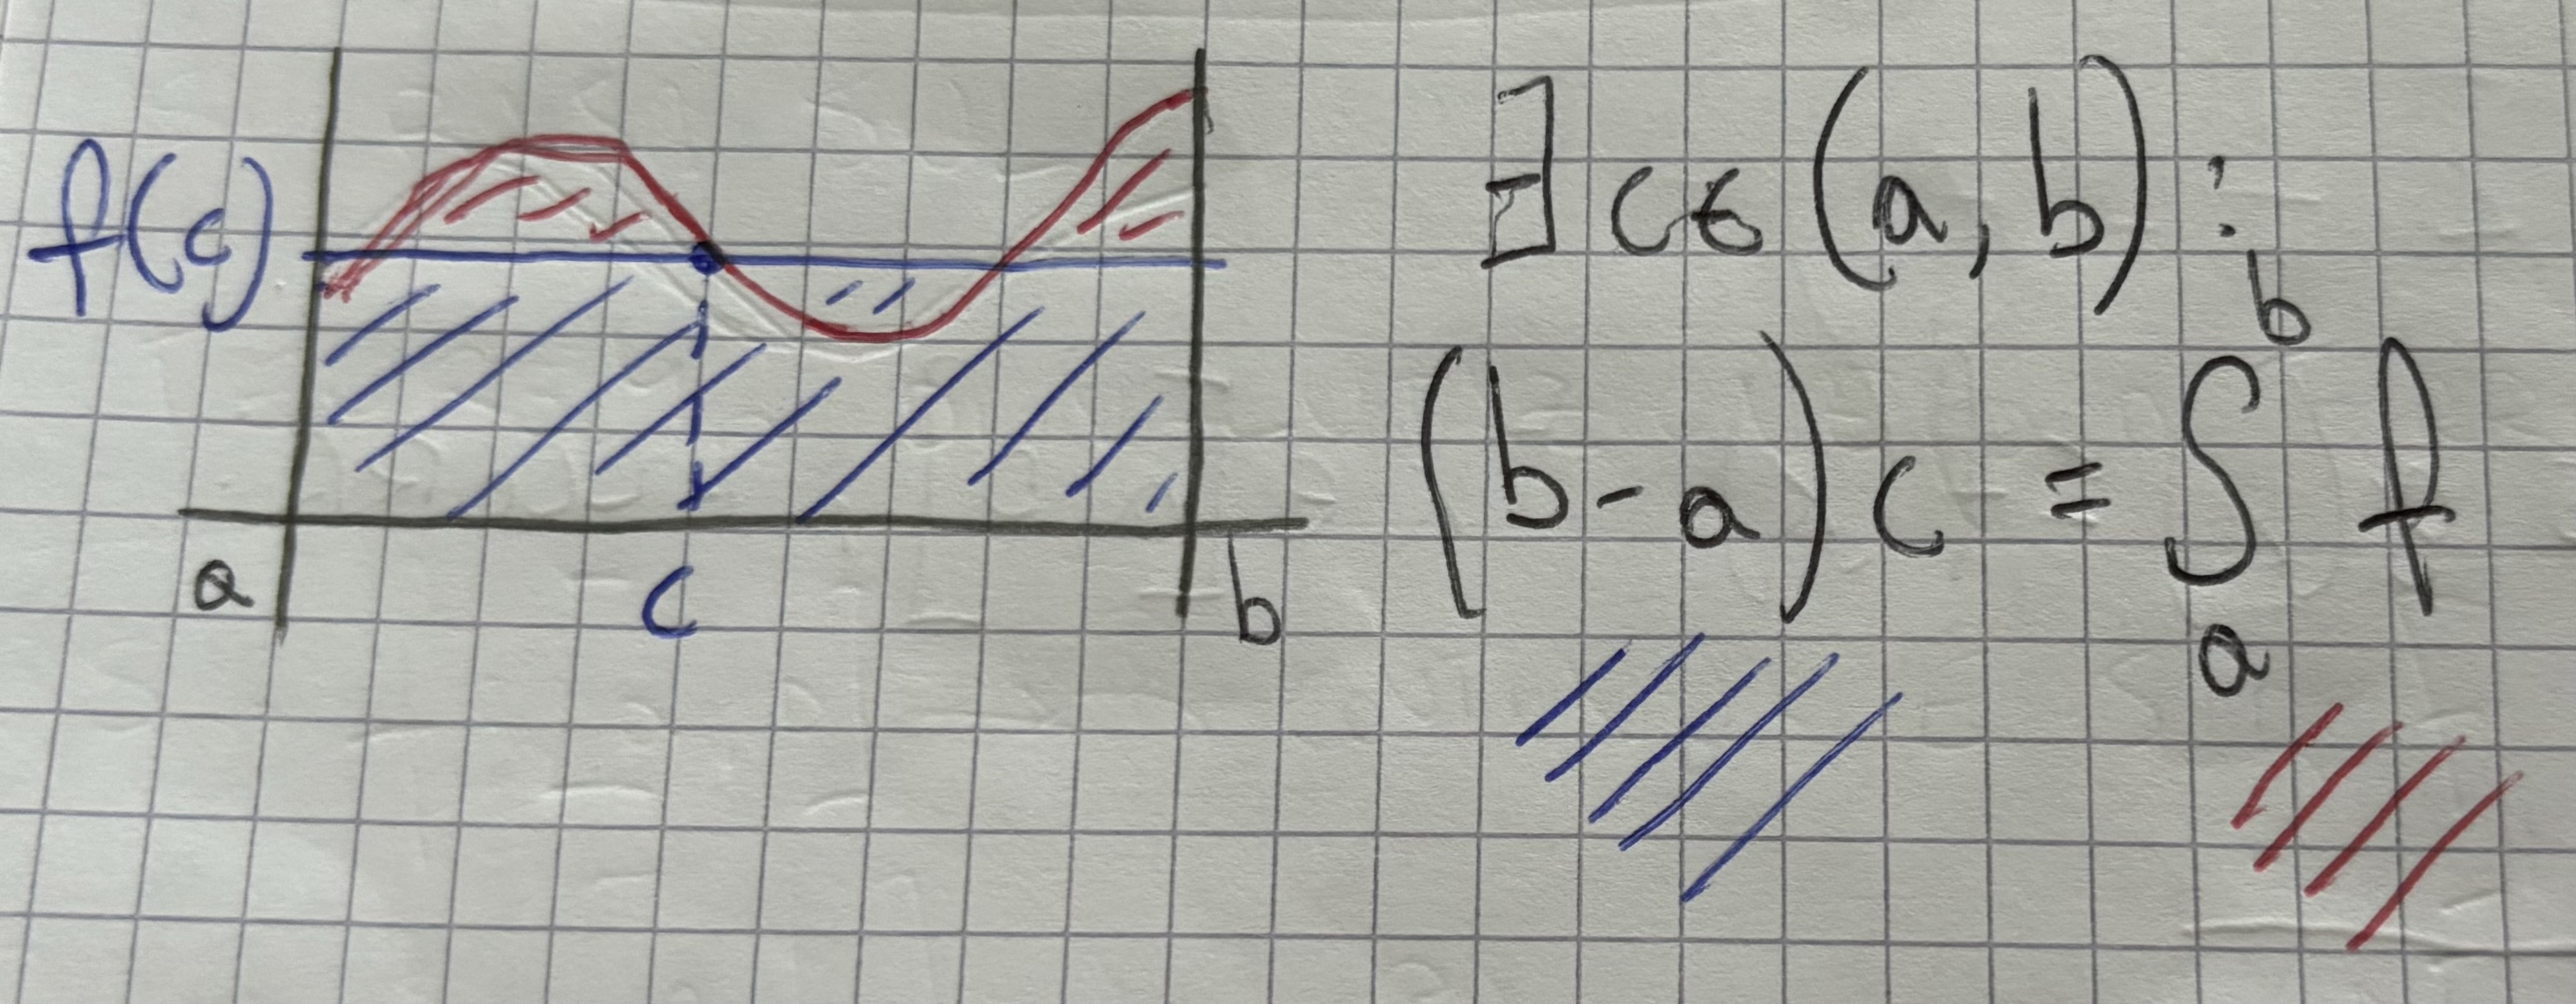 f(c)
a
c
b
∃ c ∈ (a, b) :
(b - a) c = ∫_a^b f